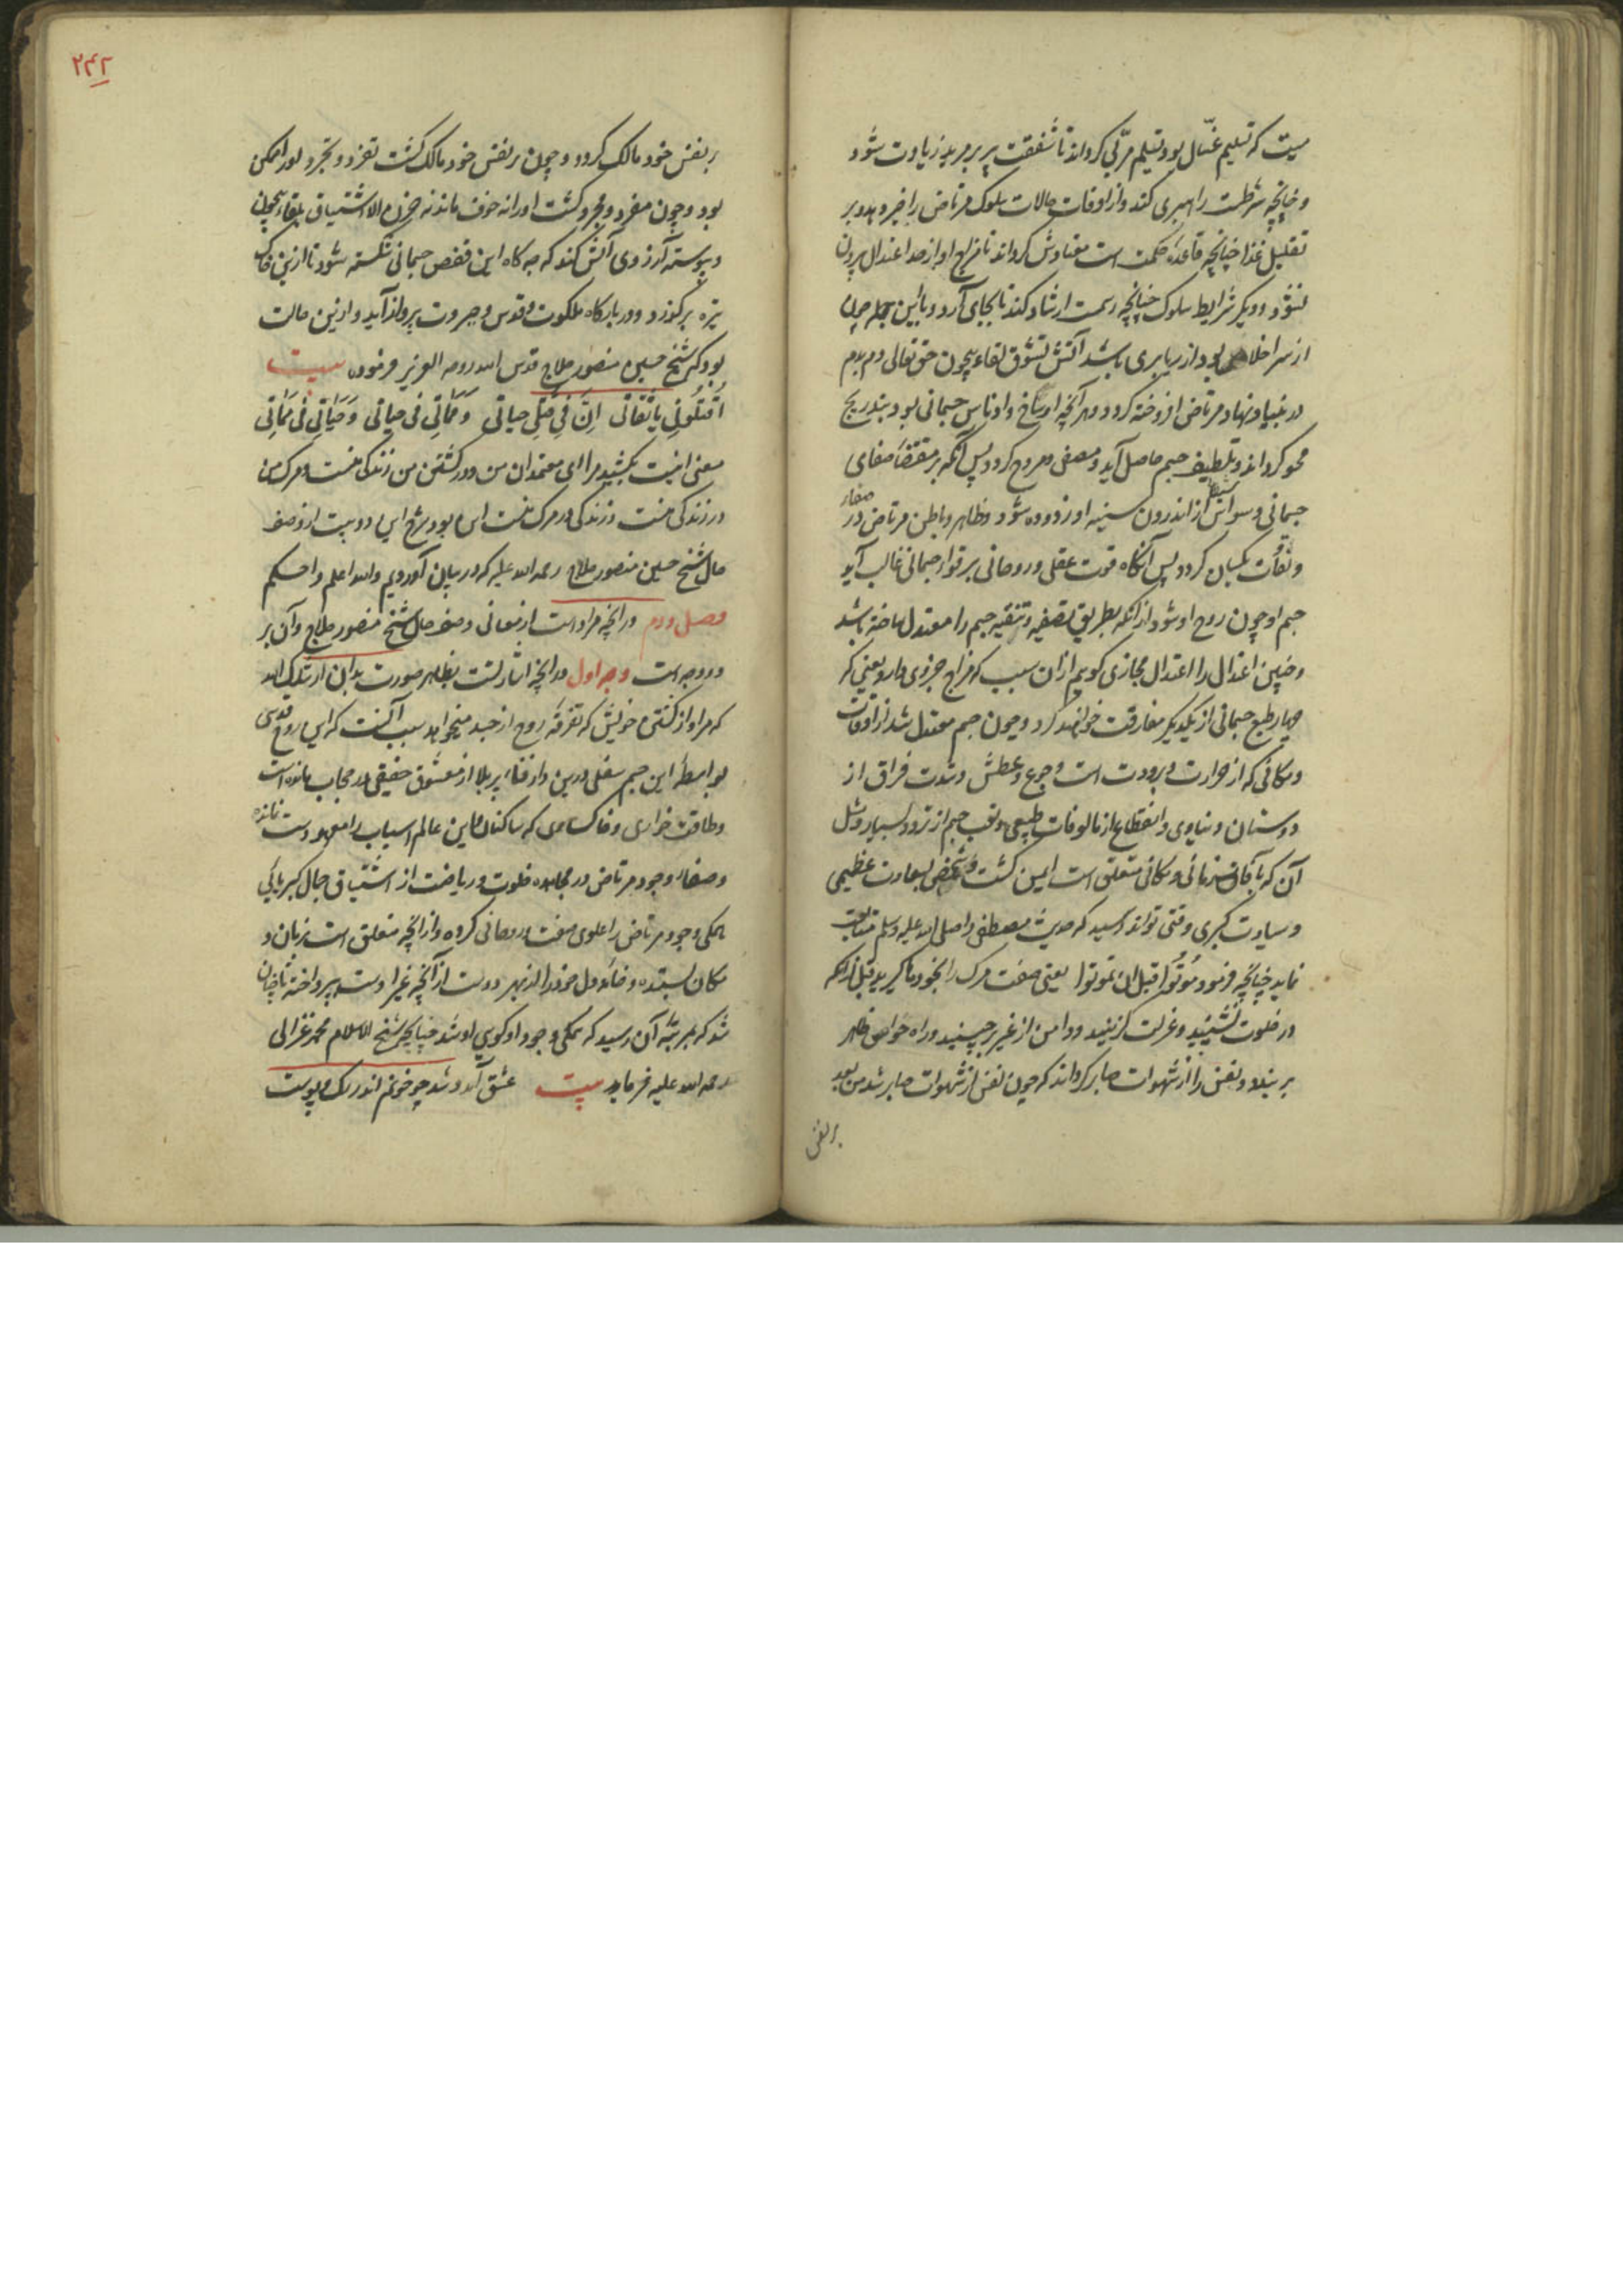 میت که تسلیم غسّال بود تسلیم مربّی کرداند تا شفقت پیر بر مرید زیادت شود
و چنانچه شرطست راهبری کند و از اوقات حالات سلوک مرتاض را خبر دهد و بر
تقلیل غذا چنانچه قاعده حکمت است معتادش کرداند تا مزاج او از حد اعتدال بیرون
نشود و دیکر شرایط سلوک چنانچه رسمست ارشاد کند تا بجای آرد و باین جمله چون
از سر اخلاص بود از ریا بری باشد آتش تشوق لقاء بیچون حق تعالی دم بدم
در بنیاد نهاد مرتاض افروخته کردد و هر آنچه اوساخ و ادناس جسمانی بود بتدریج
محو کرداند و تلطیف جسم حاصل آید و مصفی و مروح کردد پس آنکه بر مقتضاء صفای
جسمانی وسواس شیطان از اندرون سینه او زدوده شود و ظاهر و باطن مرتاض در صفاء
و نقات یکسان کردد پس آنکاه قوت عقلی و روحانی بر قواء جسمانی غالب آید
جسم او چون روح او شود از آنکه بطریق تصفیه و تنقیه جسم را معتدل ساخته باشد
و چنین اعتدال را اعتدال مجازی کویم از آن سبب که مزاج جزوی دارد یعنی که
چهار طبع جسمانی از یکدیکر مفارقت خواهد کرد و چون جسم معتدل شد از اوقات
و مکانی که از حرارت و برودت است و جوع و عطش و شدت فراق از
دوستان دنیاوی و انقطاع از مالوفات طبیعی و تعب جسم از تردد بسیار و مثل
آن که بآفات زمانی و مکانی متعلق است ایمن کشت و شخصی بسعادت عظیمی
و سیادت کبری وقتی تواند رسید که حدیث مصطفی را صلی الله علیه وسلم متابعت
نماید چنانچه فرمود مُوتُوا قبل ان تموتوا یعنی صفت مرک را بخود فا کیرید قبل از آنکه
در خلوت نشینید و عزلت کزینید و دامن از غیر برچینید و راه حواس ظاهر
بر بندد و نفس را از شهوات صابر کرداند که چون نفس از شهوات صابر شد من بعد
بر نفس
۲۴۲
بر نفس خود مالک کردد و چون بر نفس خود مالک کشت تفرد و تجرد او را ممکن
بود و چون مفرد و مجرد کشت او را نه خوف ماند نه حزن الا اشتیاق بلقاء بیچون
و پیوسته آرزوی آتش کند که چه کاه این قفص جسمانی شکسته شود تا ازین خاک
تیره بر کذرد و در بارکاه ملکوت قدس و جبروت پرواز آید و ازین حالت
بود که شیخ حسین منصور حلاج قدس الله روحه العزیز فرموده بیت
اُقتُلُونِی یا ثقاتی اِنَّ فِی قَتلِی حیاتی وَ مَمَاتِی فی حیاتی وَ حَیَاتِی فی مَمَاتِی
معنی اینست بکشید مرا ای معتمدان من و در کشتن من زندکی منست و مرک من
در زندکی منست و زندکی در مرک منست این بود شرح این دو بیت از وصف
حال شیخ حسین منصور حلاج رحمه الله علیه که در بیان آوردیم والله اعلم و احکم
فصل دوم در آنچه مراد است از معانی وصف حال شیخ منصور حلاج و آن بر
دو وجه است وجه اول در آنچه اشارتست بظاهر صورت بدان ارشدک الله
که مراد از کشتن خویش که تفرقه روح از جسد میخواهد سبب آنست که این روح قدسی
بواسطه این جسم سفلی درین دار فناء پر بلا از معشوق حقیقی در حجاب مانده است
و طاقت خواری و خاکساری که ساکنان این عالم اسباب را معهود است نمانده
و صفاء وجود مرتاض در مجاهده خلوت و ریاضت از اشتیاق جمال کبریائی
همکی وجود مرتاض را علوی صفت و روحانی کرده و از آنچه متعلق است بزبان و
مکان بستده و خانه دل خود را از بهر دوست از آنچه غیر اوست بپرداخته تا چنان
شد که بمرتبه آن رسید که همکی وجود او کوئی او شد چنانچه شیخ الاسلام محمد غزالی
رحمه الله علیه فرماید بیت عشق آمد و شد چو خونم اندر رک و پوست